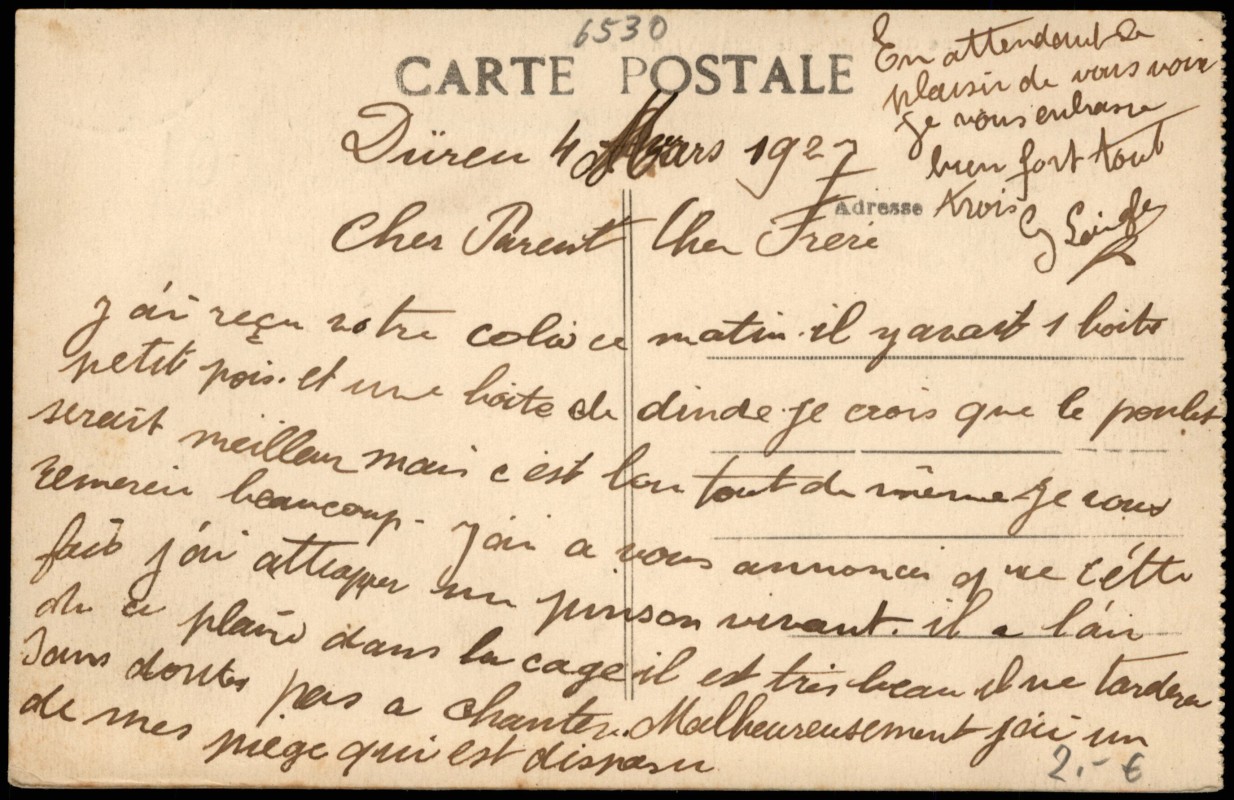 6530
CARTE POSTALE
Düren 4 Mars 1927
Adresse
Cher Parent Cher Frere
j'ai reçu votre colis ce matin. il y avait 1 boite
petit pois. et une boite de dinde. je crois que le poulet
serait meilleur mais c'est bon tout de même. Je vous
remerci beaucoup. j'ai a vous annoncer que cétte
fois j'ai attrapper un pinson vivant. il a l'air
de ce plaire dans la cage il est tres beau il ne tardera
sans doutes pas a chanter. Malheureusement j'ai un
de mes piege qui est disparu
En attendant le
plaisir de vous voir
je vous enbrasse
bien fort tout
trois
2.- €